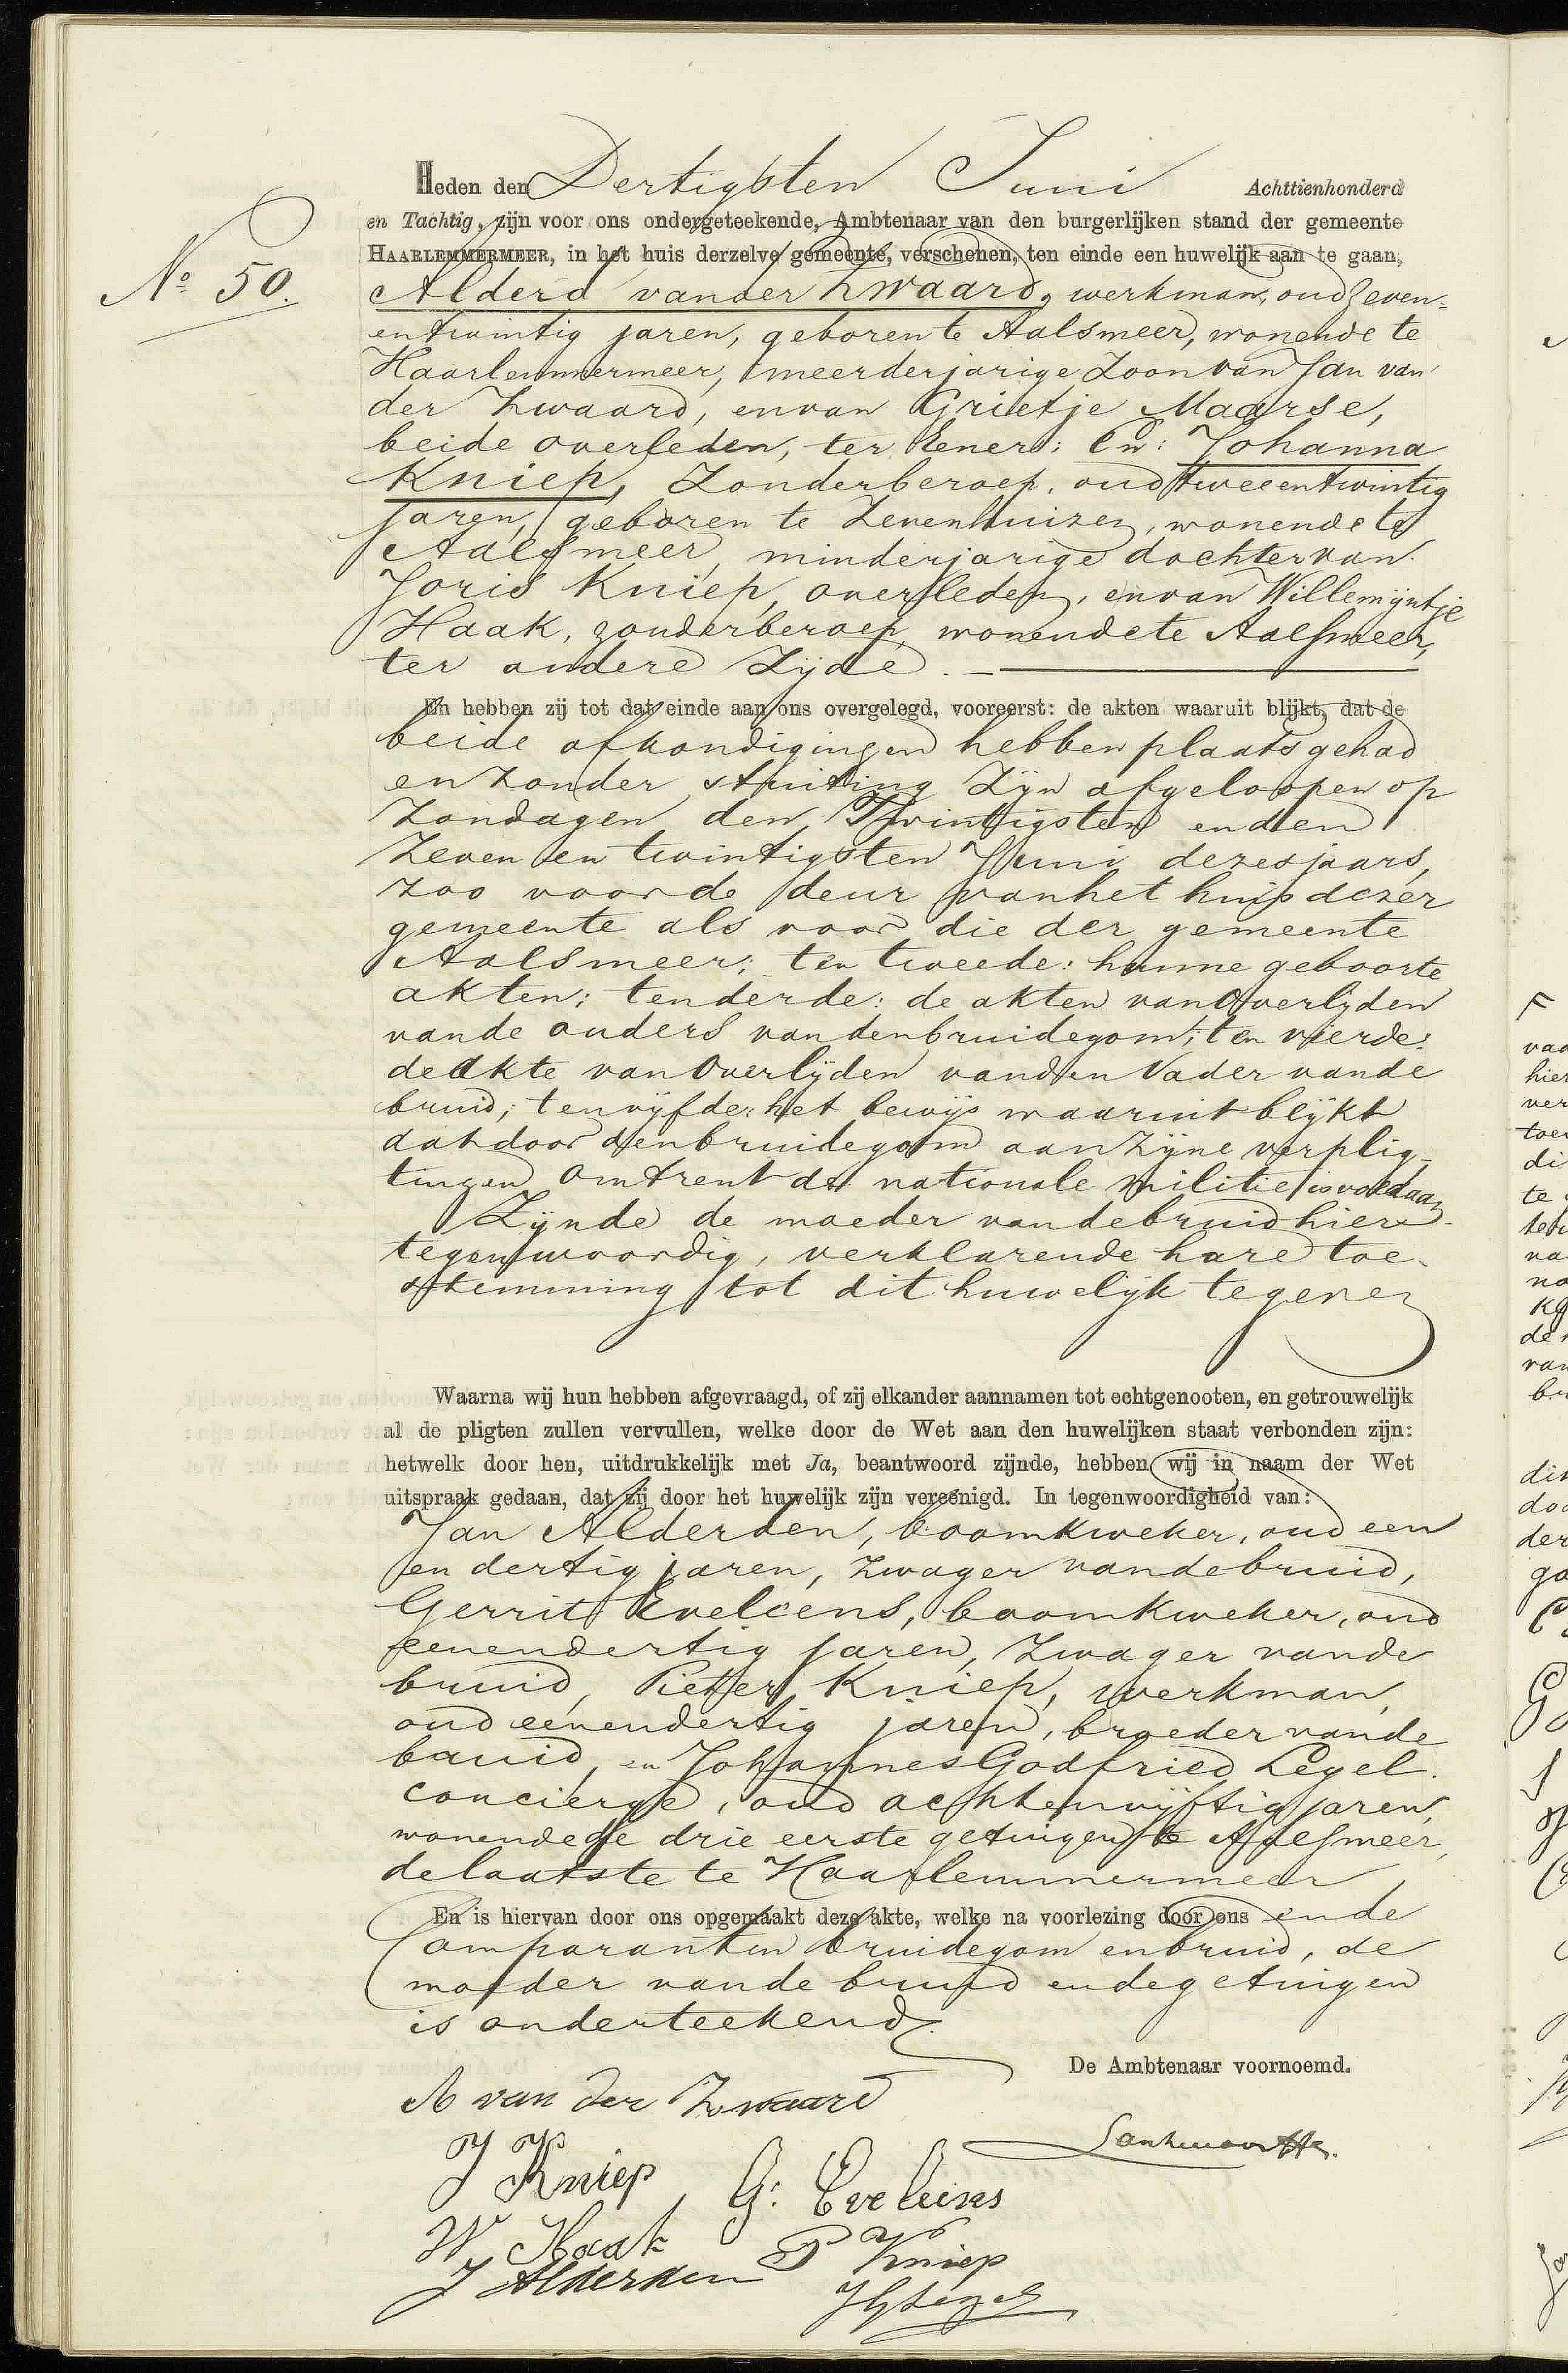 Nº 50.
Heden den Dertigsten Juni Achttienhonderd
en Tachtig, zijn voor ons ondergeteekende, Ambtenaar van den burgerlijken stand der gemeente
HAARLEMMERMEER, in het huis derzelve gemeente, verschenen, ten einde een huwelijk aan te gaan,
Alderd van der Zwaard, werkman, oud zeven-
entwintig jaren, geboren te Aalsmeer, wonende te
Haarlemmermeer, meerderjarige Zoon van Jan van
der Zwaard, en van Grietje Maarse,
beide overleden, ter Eener; En: Johanna
Kniep, Zonder beroep, oud tweeentwintig
jaren, geboren te Zevenhuizen, wonende te
Aalsmeer, minderjarige dochter van
Joris Kniep, overleden, en van Willemijntje
Haak, zonder beroep, wonende te Aalsmeer,
ter andere Zijde.
En hebben zij tot dat einde aan ons overgelegd, vooreerst: de akten waaruit blijkt, dat de
beide afkondigingen hebben plaats gehad
en zonder stuiting Zijn afgeloopen op
Zondagen den Twintigsten en den
Zeven en twintigsten Juni dezes jaars,
zoo voor de deur van het huis dezer
gemeente als voor die der gemeente
Aalsmeer; ten tweede: hunne geboorte
akten; ten derde: de akten van Overlijden
van de ouders van den bruidegom; ten vierde:
de akte van Overlijden van den Vader van de
bruid; ten vijfde: het bewijs waaruit blijkt
dat door den bruidegom aan Zijne verplig-
tingen omtrent de nationale militie is voldaan.
Zijnde de moeder van de bruid hier
tegenwoordig, verklarende hare toe-
stemming tot dit huwelijk te geven
Waarna wij hun hebben afgevraagd, of zij elkander aannamen tot echtgenooten, en getrouwelijk
al de pligten zullen vervullen, welke door de Wet aan den huwelijken staat verbonden zijn:
hetwelk door hen, uitdrukkelijk met Ja, beantwoord zijnde, hebben wij in naam der Wet
uitspraak gedaan, dat zij door het huwelijk zijn vereenigd. In tegenwoordigheid van:
Jan Alderden, boomkweker, oud een
en dertig jaren, zwager van de bruid,
Gerrit Eveleens, boomkweker, oud
eenendertig jaren, Zwager van de
bruid, Pieter Kniep, werkman,
oud eenendertig jaren, broeder van de
bruid, en Johannes Godfried Legel.
concierge, oud achtenvijftig jaren,
wonende de drie eerste getuigen te Aalsmeer,
de laatste te Haarlemmermeer
En is hiervan door ons opgemaakt deze akte, welke na voorlezing door ons en de
Comparanten bruidegom en bruid, de
moeder van de bruid en de getuigen
is onderteekend.
De Ambtenaar voornoemd.
A van der Zwaard
J Kniep
G. Eveleins
W Haak
P Kniep
J Alderden
JG Legel